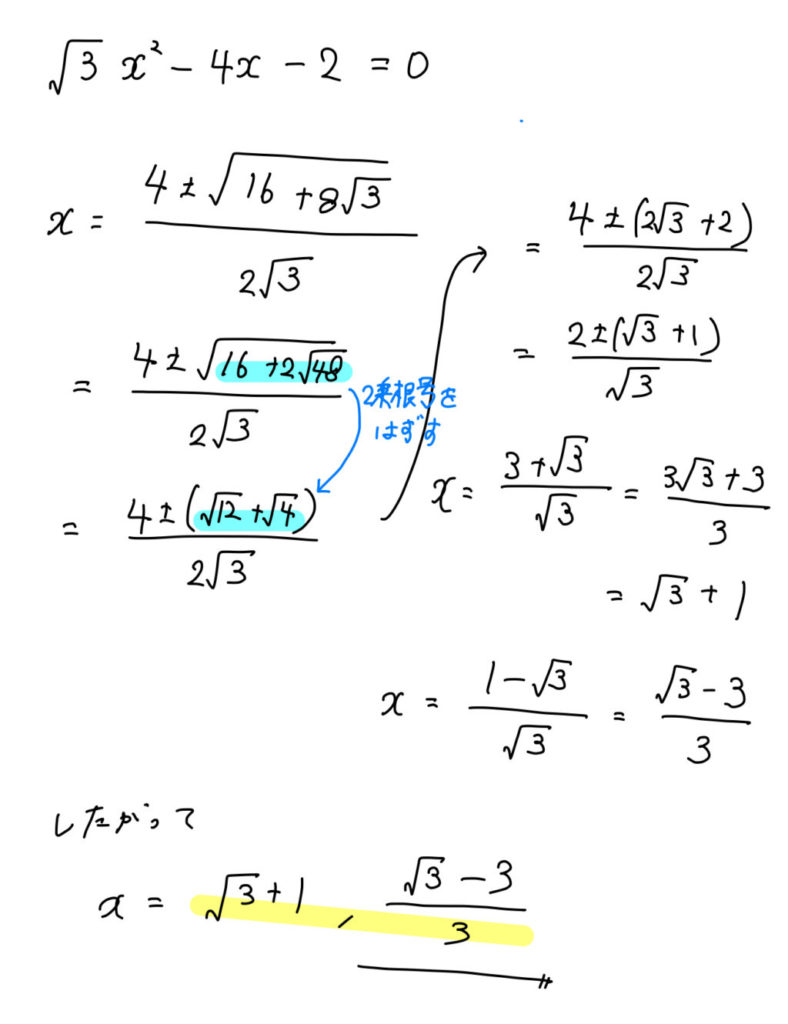 √3 x² − 4x − 2 = 0
x = (4 ± √(16 + 8√3)) / (2√3)
= (4 ± √(16 + 2√48)) / (2√3)
2乗根号を
はずす
= (4 ± (√12 + √4)) / (2√3)
= (4 ± (2√3 + 2)) / (2√3)
= (2 ± (√3 + 1)) / √3
x = (3 + √3) / √3 = (3√3 + 3) / 3
= √3 + 1
x = (1 − √3) / √3 = (√3 − 3) / 3
したがって
x = √3 + 1 , (√3 − 3) / 3